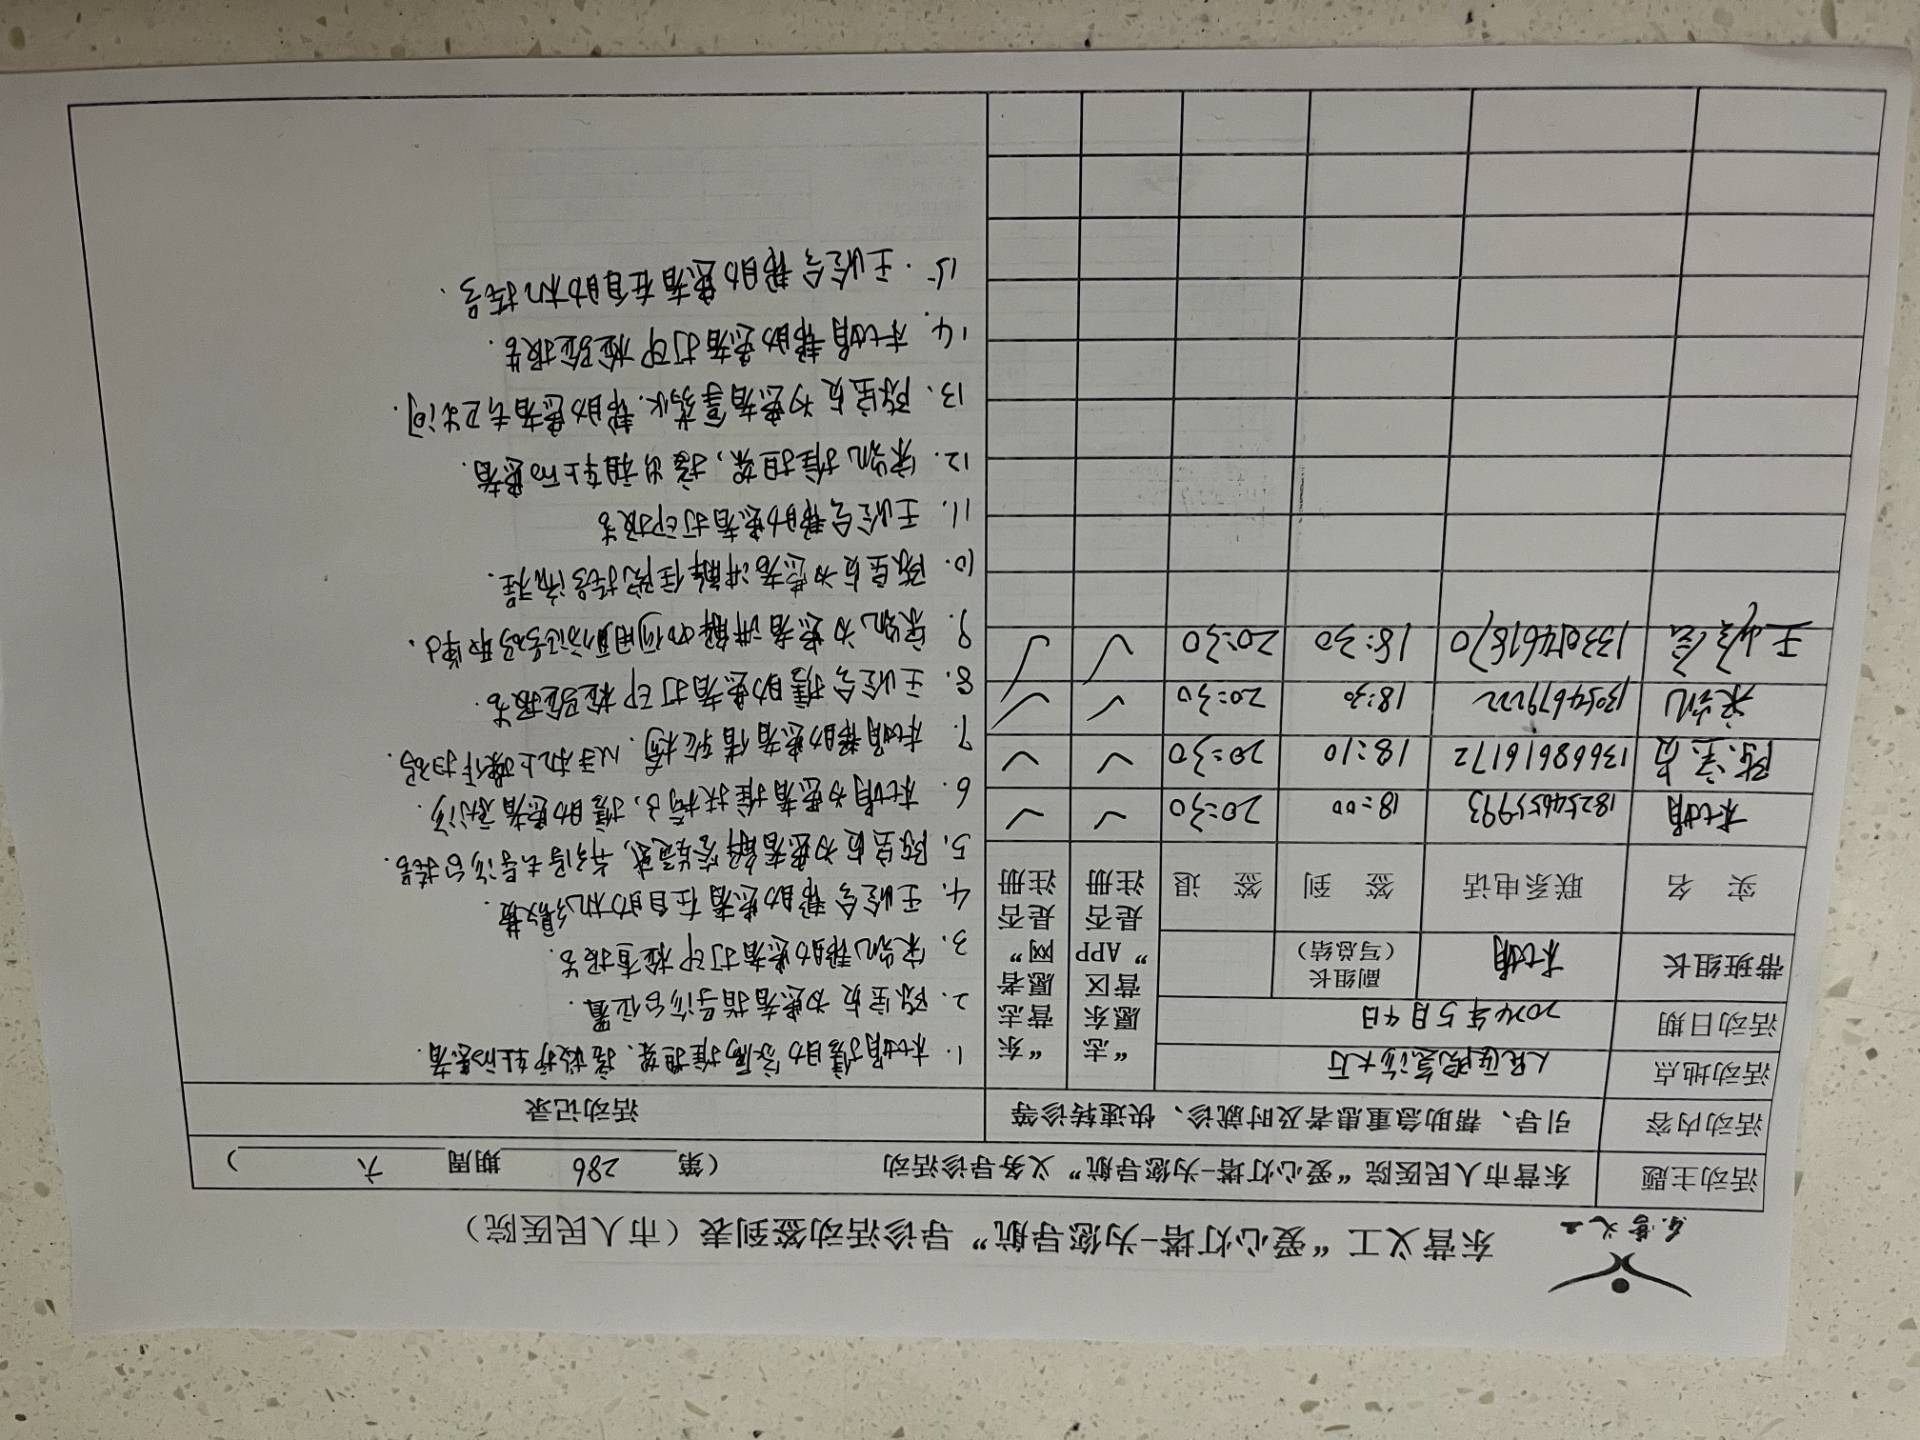 东营义工
东营义工“爱心灯塔-为您导航”导诊活动签到表（市人民医院）
活动主题 东营市人民医院“爱心灯塔-为您导航”义务导诊活动 （第 286 期周 六 ）
活动内容 引导、帮助急重患者及时就诊、快速转诊等
活动地点 人民医院急诊大厅
活动日期 2024年5月4日
带班组长 副组长（写总结）
“志愿东营区”APP是否注册
“东营志愿者网”是否注册
实 名 联系电话 签 到 签 退
18254655993 18:00 20:30 ✓ ✓
13668616172 18:10 20:30 ✓ ✓
13054679222 18:30 20:30 ✓ ✓
13301461870 18:30 20:30 ✓ ✓
活动记录
1. 搀助家属推担架、接救护车上的患者
2. 为患者指导诊台位置.
3. 帮助患者打印检查报告.
4. 帮助患者在自助机缴费.
5. 为患者解答疑惑, 并引导去导诊台挂号.
6. 为患者推扶椅子, 搀助患者就诊.
7. 帮助患者借轮椅. 从手机上操作扫码.
8. 搀助患者打印检验报告.
9. 为患者讲解如何用就诊号码取单子.
10. 为患者讲解住院挂号流程.
11. 帮助患者打印报告
12. 推担架, 接出租车上的患者.
13. 为患者拿药水. 帮助患者去卫生间.
14. 帮助患者打印检验报告.
15. 帮助患者在自助机挂号.